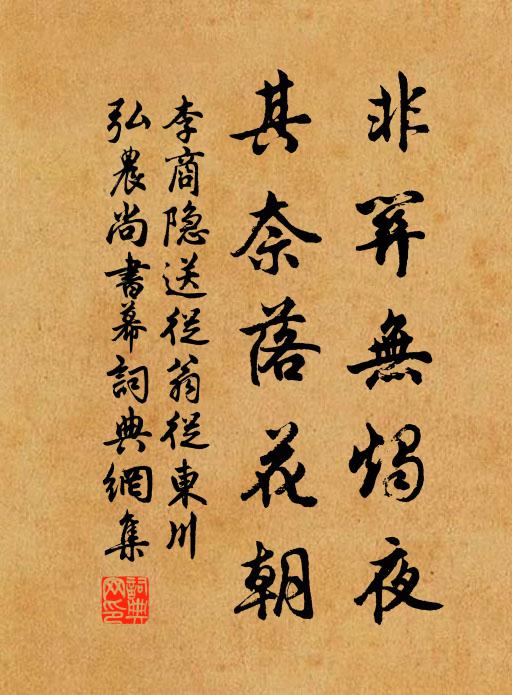 非關無燭夜
其奈落花朝
李商隐送從翁從東川
弘農尚書幕詞典網集
詞典
网印